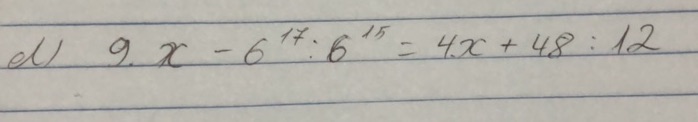 d) 9.x - 6^17 : 6^15 = 4.x + 48 : 12